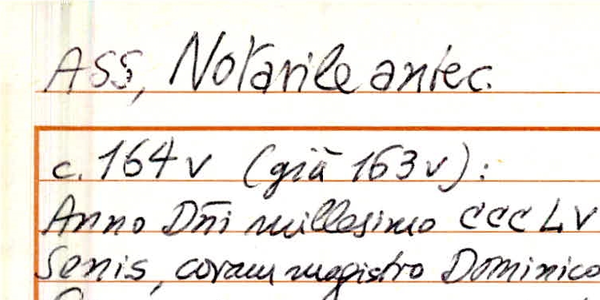 ASS, Notarile antec.
c. 164v (già 163v):
Anno Dñi millesimo CCCLV
Senis, coram magistro Dominico